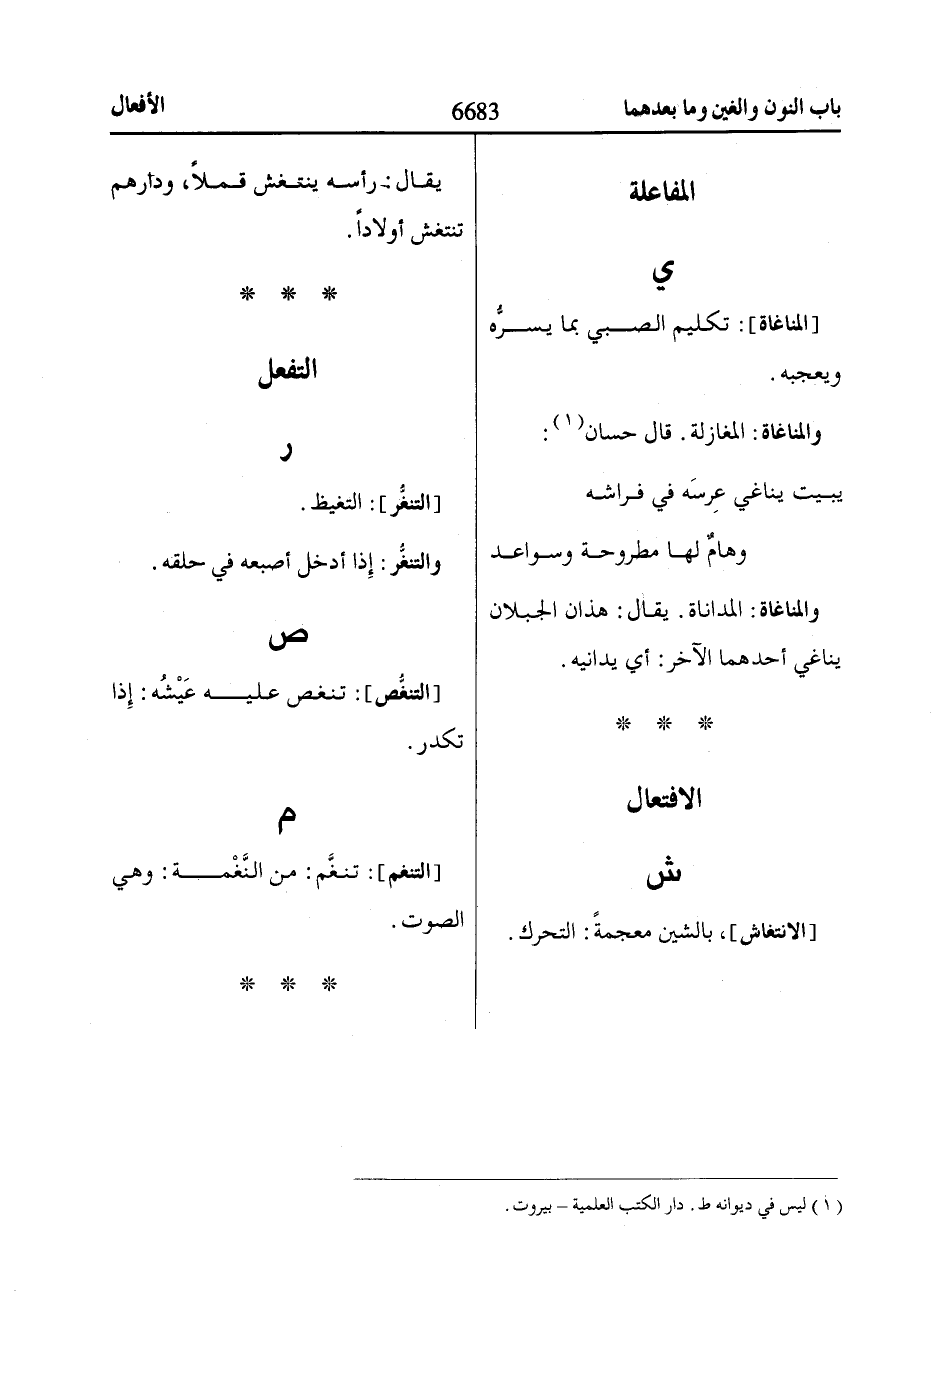 باب النون والغين وما بعدهما 6683 الأفعال
المفاعلة
ي
[المناغاة]: تكليم الصبي بما يسرُّه
ويعجبه.
والمناغاة: المغازلة. قال حسان(١):
يبيت يناغي عِرسَه في فراشه
وهامٌ لها مطروحة وسواعد
والمناغاة: المداناة. يقال: هذان الجبلان
يناغي أحدهما الآخر: أي يدانيه.
* * *
الافتعال
ش
[الانتغاش]، بالشين معجمةً: التحرك.
يقال: رأسه ينتغش قملاً، ودارهم
تنتغش أولاداً.
* * *
التفعل
ر
[التنغُّر]: التغيظ.
والتنغُّر: إذا أدخل أصبعه في حلقه.
ص
[التنغُّص]: تنغص عليه عَيْشُه: إذا
تكدر.
م
[التنغم]: تنغَّم: من النَّغْمة: وهي
الصوت.
* * *
(١) ليس في ديوانه ط. دار الكتب العلمية – بيروت.